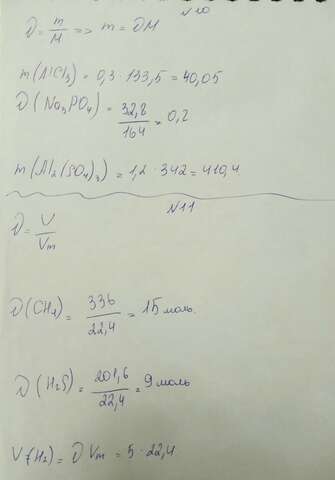 №10
ν = m/M => m = νM
m(AlCl3) = 0,3 · 133,5 = 40,05
ν(Na3PO4) = 32,8/164 = 0,2
m(Al2(SO4)3) = 1,2 · 342 = 410,4
№11
ν = V/Vm
ν(CH4) = 336/22,4 = 15 моль.
ν(H2S) = 201,6/22,4 = 9 моль
V(H2) = ν Vm = 5 · 22,4